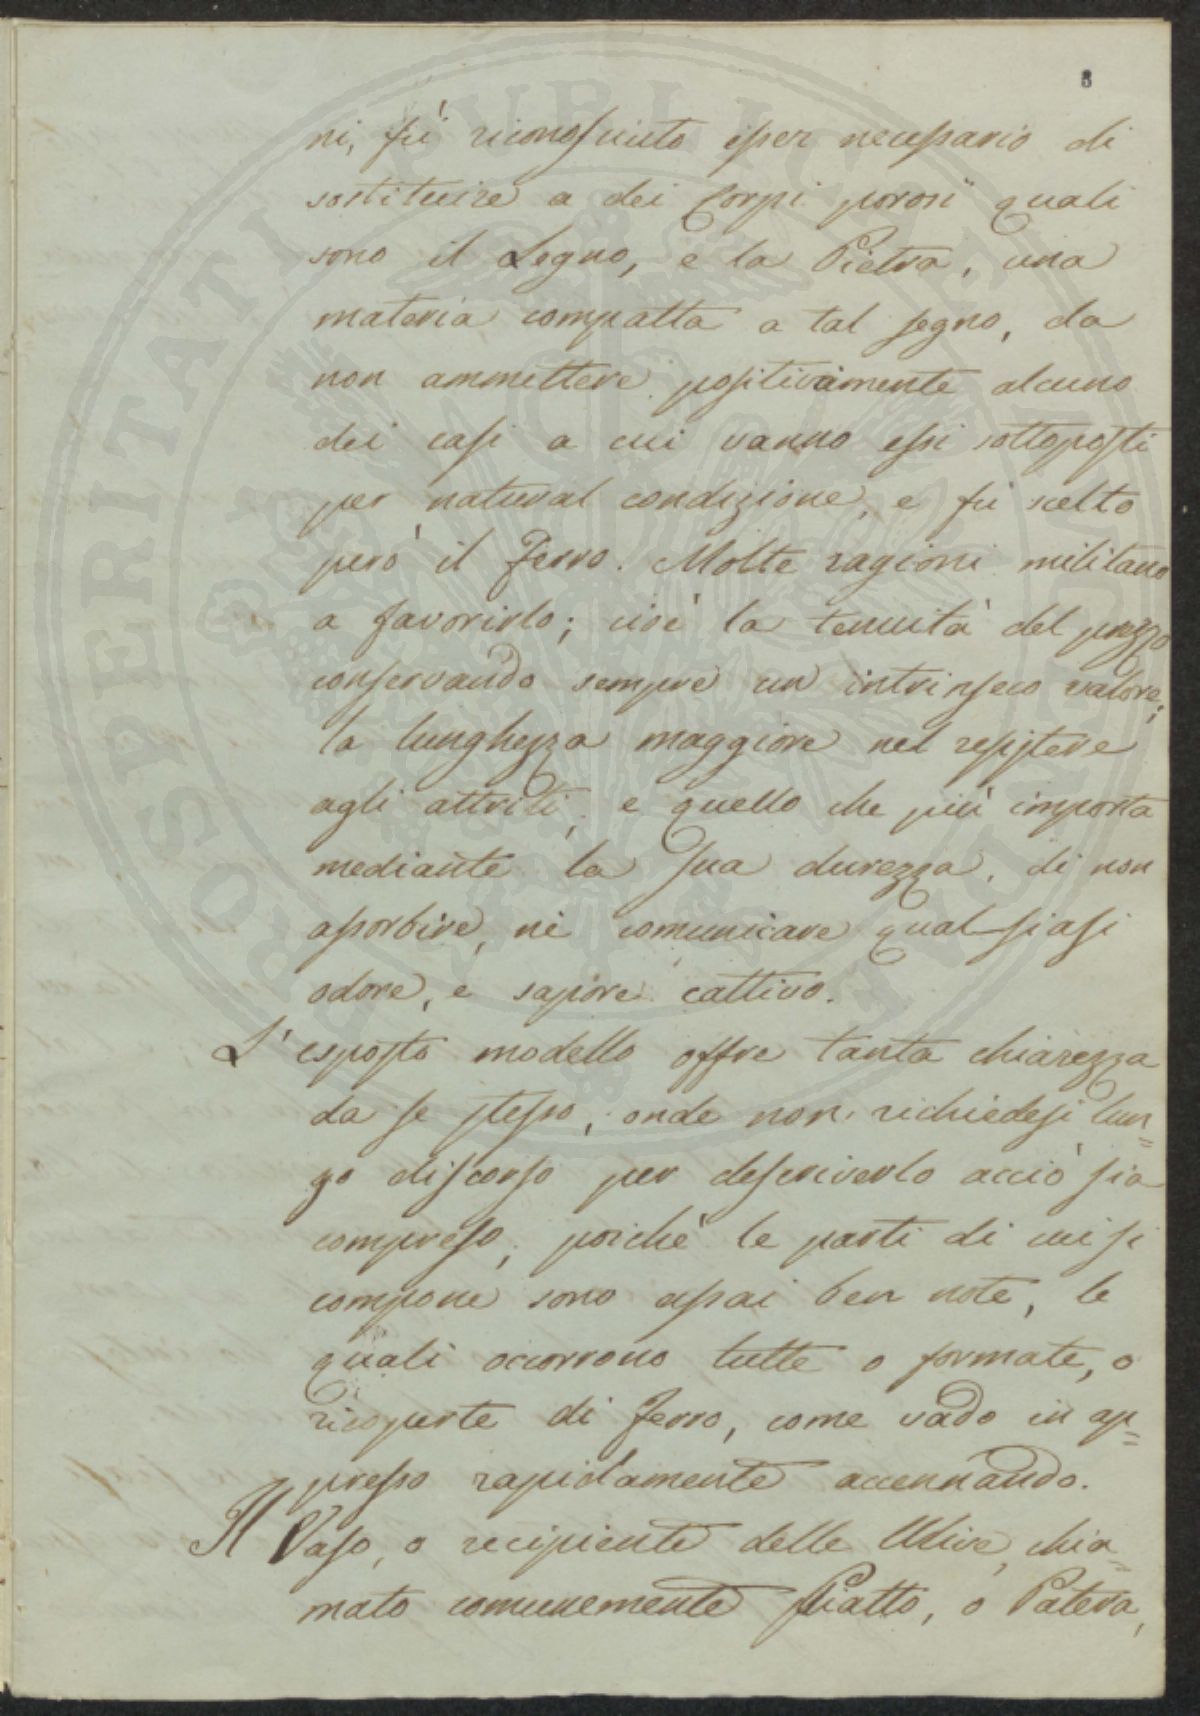 8
ni, fù riconosciuto esser necessario di
sostituire a dei Corpi porosi quali
sono il Legno, e la Pietra, una
materia compatta a tal segno, da
non ammettere positivamente alcuno
dei casi a cui vanno essi sottoposti
per natural condizione, e fù scelto
però il Ferro. Molte ragioni militano
a favorirlo; cioè la tenuità del prezzo
conservando sempre un intrinseco valore;
la lunghezza maggiore nel resistere
agli attriti, e quello che più importa
mediante la sua durezza, di non
assorbire, nè comunicare qual siasi
odore, e sapore cattivo.
L'esposto modello offre tanta chiarezza
da se stesso, onde non richiedesi lun=
go discorso per descriverlo acciò sia
compreso, poichè le parti di cui si
compone sono assai ben note, le
quali occorrono tutte o formate, o
ricoperte di Ferro, come vado in ap=
presso rapidamente accennando.
Il Vaso, o recipiente delle Ulive, chia=
mato comunemente Piatto, o Patera,
PROSPERITATI PUBLICAE AUGENDAE